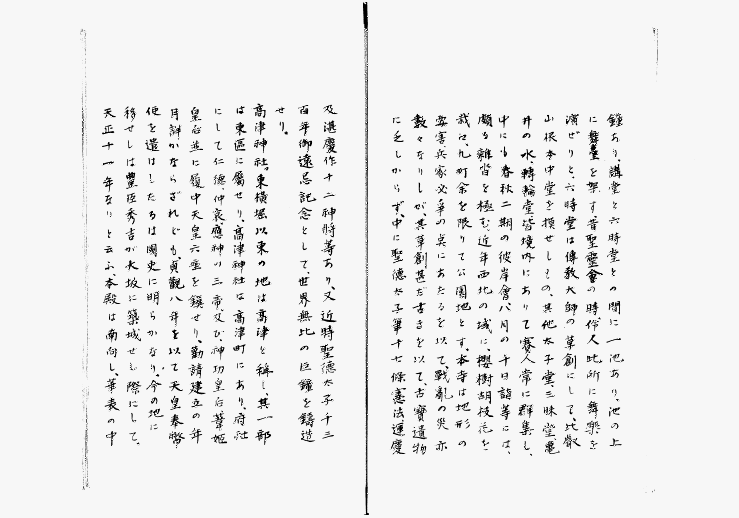 鐘あり、講堂と六時堂との間に一池あり、池の上
に舞臺を架す昔聖靈會の時伶人此所に舞樂を
演ぜりと、六時堂は傳教大師の草創にして、比叡
山根本中堂を摸せしもの、其他太子堂、三昧堂、龜
井の水、轉輪堂皆境內にありて賽人常に群集し、
中にも春秋二期の彼岸會八月の千日詣等には、
頗る雜沓を極む、近年西北の域に、櫻樹胡枝花を
栽ゑ、九町余を限りて公園地とす、本寺は地形の
要害兵家必爭の点にあたるを以て、戰亂の災亦
數々なりしが、其草創甚だ古きを以て、古寶遺物
に乏しからず、中に聖德太子筆十七條憲法運慶
及湛慶作十二神將等あり、又近時聖德太子千三
百年御遠忌記念として、世界無比の巨鐘を鑄造
せり。
高津神社。東橫堀以東の地は高津と稱し、其一部
は東區に屬せり、高津神社は高津町にあり、府社
にして仁德、仲哀、應神の三帝、又び、神功皇后葦姬
皇后並に履中天皇六座を鎮せり、勸請建立の年
月詳かならざれども、貞觀八年を以て天皇奉幣
使を遣はしたるは國史に明らかなり、今の地に
移せしは豐臣秀吉が大坂に築城せし際にして、
天正十一年なりと云ふ、本殿は南向し、華表の中